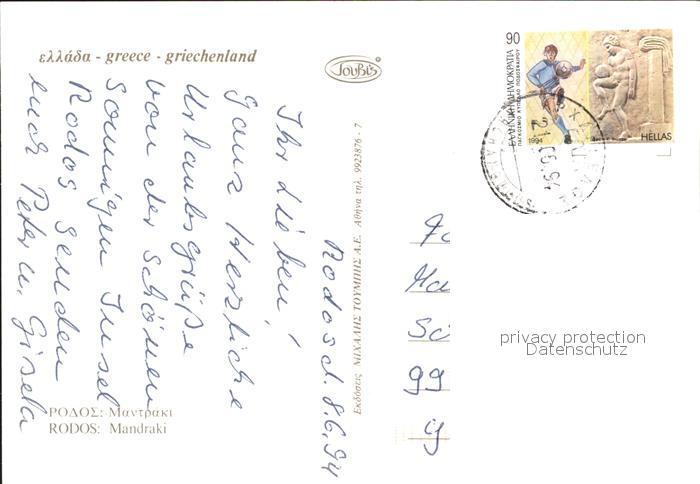 ελλάδα - greece - griechenland
Τουβίς
Rodos d. 8.6.94
Ihr Lieben!
Ganz Herzliche
Urlaubsgrüße
von der schönen
Sonnigen Insel
Rodos senden
euch Peter u. Gisela
ΡΟΔΟΣ: Μαντρακι
RODOS: Mandraki
Εκδόσεις ΜΙΧΑΛΗΣ ΤΟΥΜΠΗΣ Α.Ε. Αθήνα τηλ. 9923876 - 7
90
ΕΛΛΗΝΙΚΗ ΔΗΜΟΚΡΑΤΙΑ
ΠΑΓΚΟΣΜΙΟ ΚΥΠΕΛΛΟ ΠΟΔΟΣΦΑΙΡΟΥ
1994
HELLAS
Ha
99
privacy protection
Datenschutz